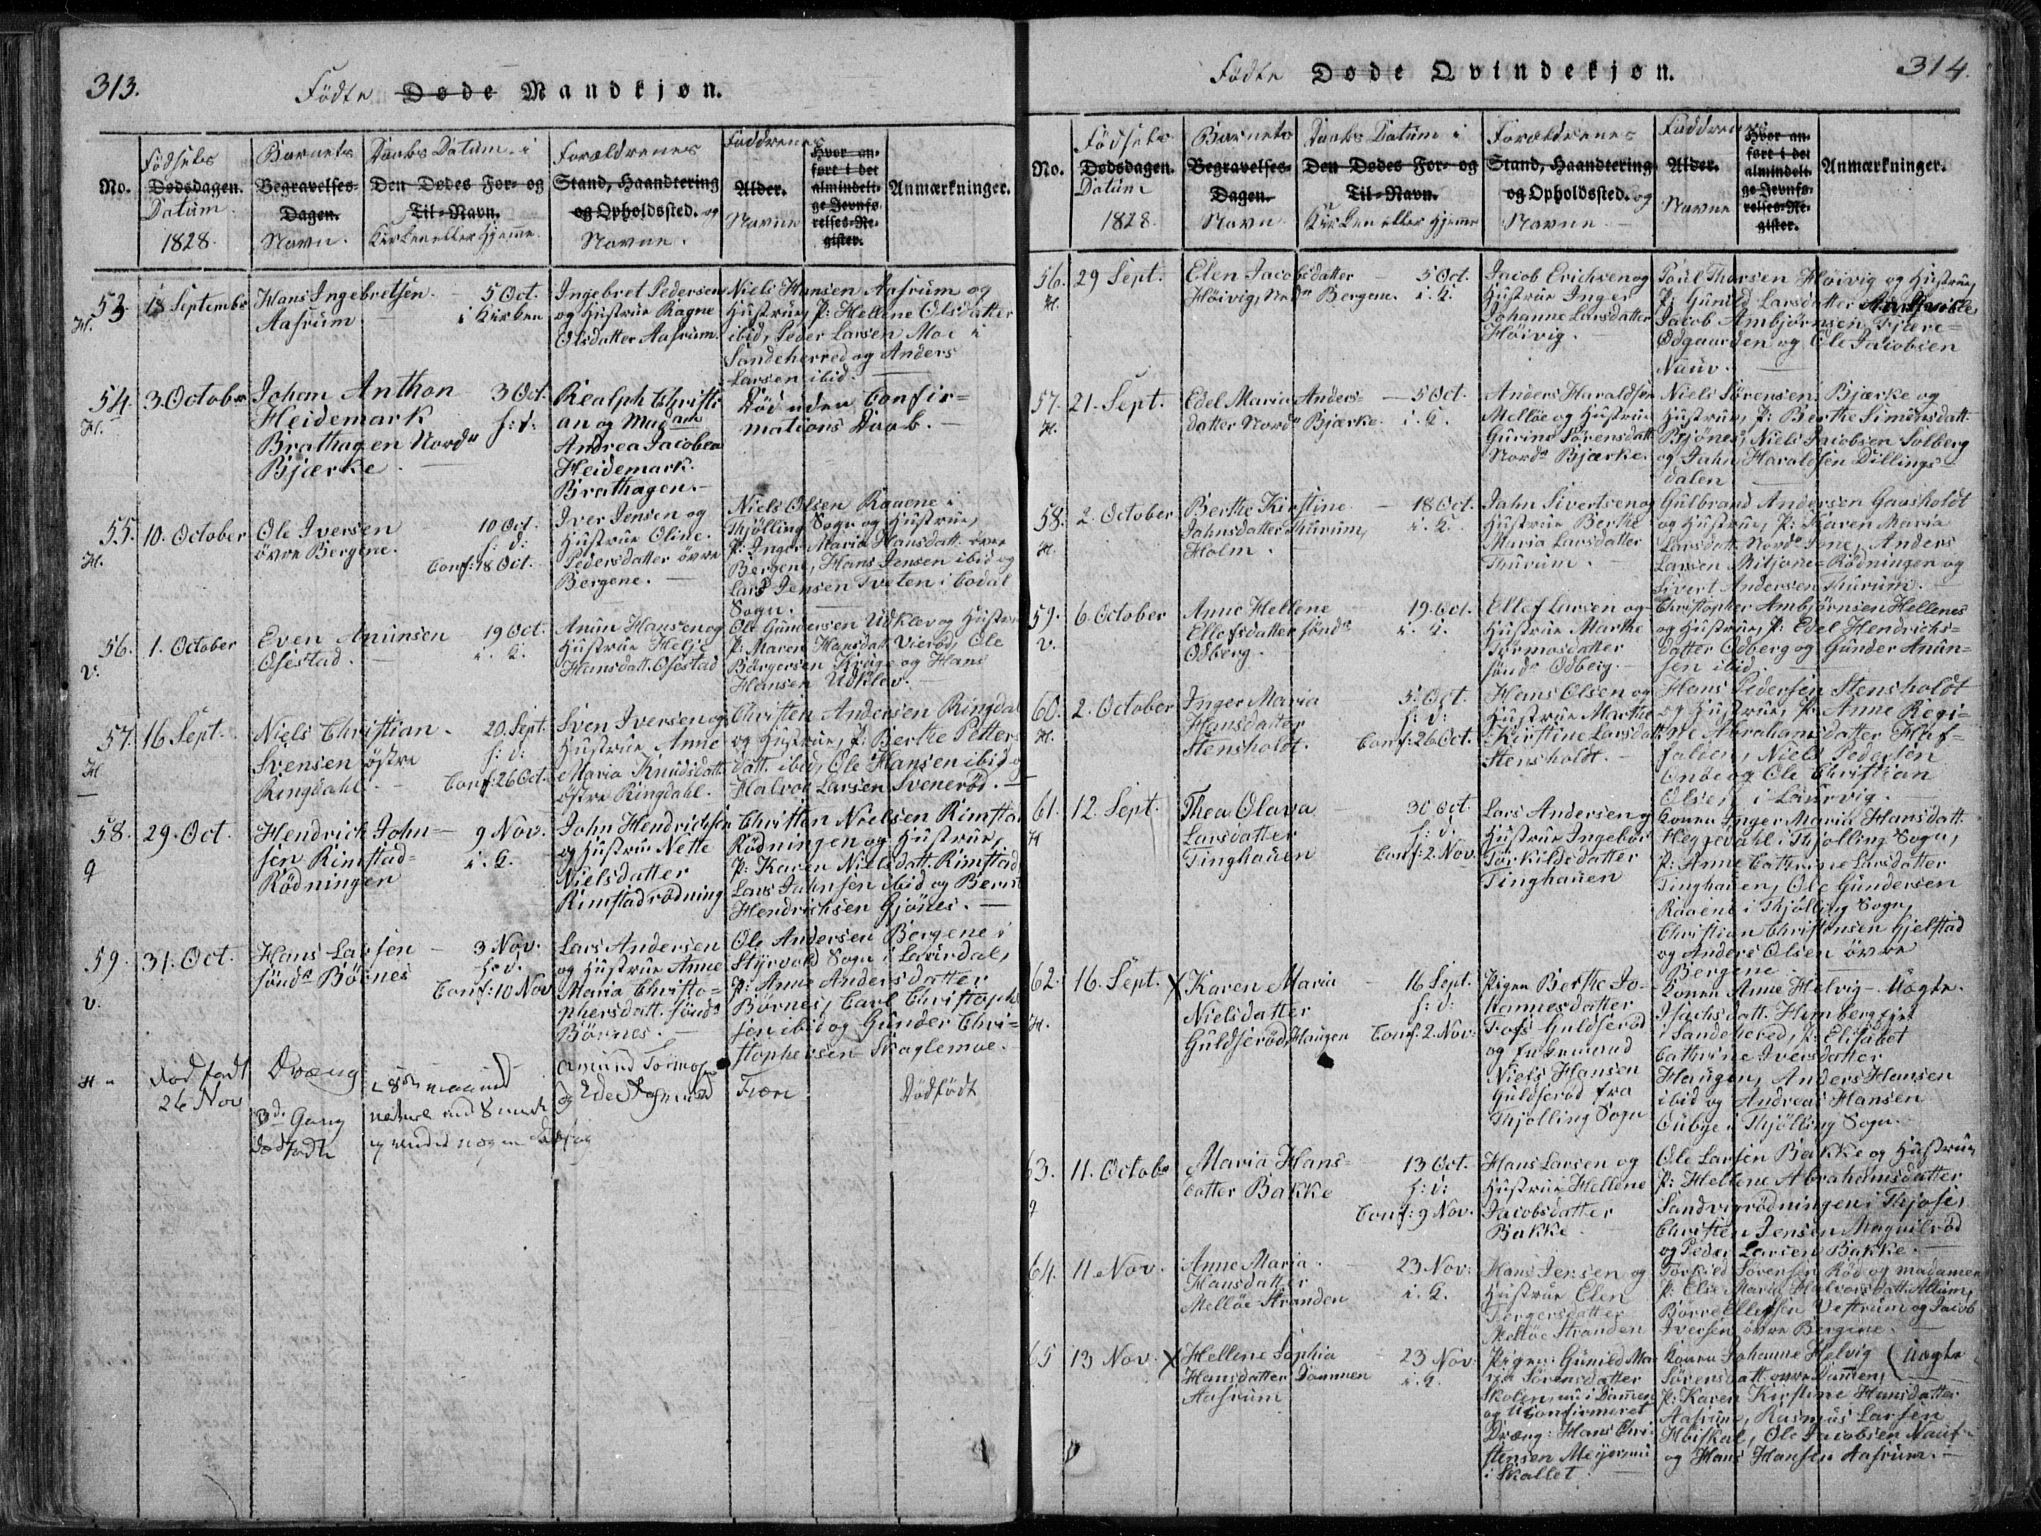 313.
Födte Döde Mandkjøn.
No.
Födsels
Dødsdagen.
Datum
1828.
Barnets
Begravelses-
Dagen.
Navn.
Daabs Datum i
Den Dödes For- og
Til-Navn.
Kirken eller Hjemme.
Forældrenes
Stand, Haandtering
og Opholdssted. og
Navne.
Faddrenes
Alder.
Navne
Hvor an-
fört i det
almindeli-
ge Jevnfø-
relses-Re-
gister.
Anmærkninger.
53 18 Septembr
H.
Hans Ingebretsen
Aasrum
5 Oct.
i Kirken
Ingebret Pedersen
og Hustrue Ragne
Olsdatter Aasrum
Niels Hansen Aasrum og
Hustrue, P: Hellene Olsdatter
ibid, Peder Larsen Moe i
Sandeherred og Anders
Larsen ibid.
54. 3. October
H.
Johem Anthon
Heidemark
Brathagen Nordn
Bjærke
3 Oct.
h: d:
Realph Christi
an og Madam
Andrea Jacobea
Heidemark
Brathagen.
Død uden Confir-
mations Daab.
55. 10. October
H.
Ole Iversen
øvre Bergene.
10 Oct.
h: d:
Conf: 18 Oct.
Iver Jensen og
Hustrue Oline
Pedersdatter øvre
Bergene.
Niels Olsen Rauene i
Thjølling Sogn og Hustrue,
P: Inger Maria Hansdatt. øvre
Bergene, Hans Jensen ibid og
Lars Jensen Tveten i Hodal
Sogn.
56. 1. October
V.
Even Anunsen
Ofestad.
19 Oct.
i. K.
Anun Hansen og
Hustrue Helje
Hansdatt. Ofestad
Ole Gundersen Udklev og Hustrue
P: Maren Hansdatt Vierød, Ole
Børgersen Krüge og Hans
Hansen Udklev.
57. 16 Sept.
H
Niels Christian
Svensen østre
Ringdahl.
20. Sept.
h: d:
Conf: 26 Oct.
Sven Iversen og
Hustrue Anne
Maria Knudsdatt.
østre Ringdahl.
Christen Andersen Ringdal
og Hustrue, P: Berthe Petters
datt. ibid, Ole Hansen ibid og
Halvor Larsen Svenerød.
58. 29. Oct.
q
Hendrich John-
sen Rimstad-
Rödningen
9 Nov.
i. K.
John Hendrichsen
og Hustrue Nette
Nielsdatter
Rimstadrødning
Christen Nielsen Rimstad
Rödningen og Hustrue,
P: Karen Nielsdatt. Rimstad
Lars Jahnsen ibid og Bernt
Hendrichsen Gjønes.
59. 31. Oct.
V.
Hans Larsen
sønd. Börnes
3 Nov.
h: d.
Conf: 10 Nov
Lars Andersen
og Hustrue Anne
Maria Christo-
phersdatt. sønd.
Börnes.
Ole Andersen Bergene i
Styrvold Sogn i Laurdal,
P: Anne Andersdatter
Börnes, Carl Christoph
sen ibid og Gunder Chri-
stophersen Skaglemoe.
H
Dødfødt
26 Nov
Dræng
3d. Gang
dødfødt
Amund Tormosen
Dödfödt

314.
Födte Døde Qvindekjøn.
No.
Födsels
Dødsdagen.
Datum
1828.
Barnets
Begravelses-
Dagen.
Navn
Daabs Datum i
Den Dødes For- og
Til-Navn.
Kirken eller Hjemme
Forældrenes
Stand, Haandtering
og Opholdssted. og
Navne
Faddrenes
Alder.
Navne
Hvor an-
fört i det
almindeli-
ge Jevnfø-
relses-Re-
gister.
Anmærkninger.
56. 29 Sept.
H.
Elen Jacobsdatter
Høivig, Nordn Bergene.
5 Oct.
i. K.
Jacob Erichsen og
Hustrue Inger
Johanne Larsdatter
Høivig.
Poul Thorsen Høivig og Hustrue,
P: Gunild Larsdatter
Jacob Ambjørnsen Fjære-
Ödgaarden og Ole Jacobsen
Nauv.
57. 21. Sept.
H.
Edel Maria Anders-
datter Nordn Bjærke.
5 Oct.
i. K.
Anders Haraldsen
Melløe og Hustrue
Gurine Sørensdatt.
Nordn Bjærke.
Niels Sörensen Bjærke og
Hustrue, P: Berthe Simensdatt.
Bjønes, Niels Jacobsen Solberg
og Jahn Haraldsen Dillings-
dalen
58. 2. October
H.
Berthe Kirstine
Jahnsdatter Thurum,
Holm.
18 Oct.
i. K.
Jahn Sivertsen og
Hustrue Berthe
Maria Larsdatter
Thurum.
Gulbrand Andersen Gaasholdt
og Hustrue, P: Karen Maria
Larsdatt. Nordn Ione, Anders
Larsen Mitjone-Rödningen og
Sivert Andersen Thurum.
59. 6. October
V.
Anne Hellene
Ellefsdatter sønd.
Odberg.
19. Oct.
i. K.
Ellef Larsen og
Hustrue Marthe
Tormosdatter
sønd. Odberg.
Christopher Ambjørnsen Hellenes
og Hustrue, P: Edel Hendrichs-
datter Odberg og Gunder Anun-
sen ibid.
60. 2. October
H.
Inger Maria
Hansdatter
Stensholdt.
5. Oct.
h: d:
Conf: 26 Oct.
Hans Olsen og
Hustrue Marthe
Kirstine Larsdatt.
Stensholdt.
Hans Pedersen Stensholdt
og Hustrue, P: Anne Regi-
ne Abrahamsdatter Huf-
falden, Niels Pedersen
Onbe og Ole Christian
Olsen i Laurvig.
61. 12. Sept.
H
Thea Olava
Larsdatter
Tinghauen
30 Oct.
h: d:
Conf: 2. Nov.
Lars Andersen og
Hustrue Ingebor
Törkildsdatter
Tinghauen
Konen Inger Maria Hansdatt.
Heggedahl i Thjølling Sogn,
P: Anne Cathrine Larsdatter
Tinghauen, Ole Gundersen
Rauene i Thjølling Sogn,
Christian Christensen Gjelstad
og Anders Olsen øvre
Bergene.
62. 16. Sept. X
H.
Karen Maria
Nielsdatter
Guldserød Haugen
16 Sept.
h: d:
Conf: 2. Nov:
Pigen Berthe Jo-
hannesdatter
Foss Guldserød
og Enkemand
Niels Hansen
Guldserød fra
Thjølling Sogn
Konen Anne Helvig Uægte.
Isachsdatt. Himberg
i Sandeherred, P: Elisabet
Cathrine Iversdatter
Haugen, Anders Hansen
ibid og Andreas Hansen
Oubye i Thjølling Sogn.
63. 11. Octobr
q
Maria Hans-
datter Bakke
13 Oct.
h: d:
Conf: 9 Nov.
Hans Larsen og
Hustrue Hellene
Jacobsdatter
Bakke
Ole Larsen Bakke og Hustrue
P: Hellene Abrahamsdatter
Sandvigrødningen i Thjose,
Christen Jensen Magnilrød
og Peder Larsen Bakke.
64. 11 Nov.
Anne Maria
Hansdatter
Melløe Stranden
23 Nov:
i. K.
Hans Jensen og
Hustrue Elen
Børgersdatter
Melløe Stranden
Törkild Sörensen Rød og madamen
P: Else Maria Halvorsdatt. Allum,
Børre Ellefsen Vestrum og Jacob
Iversen øvre Bergene.
65 13 Nov. X
Hellene Sophia
Hansdatter Dammen
Aasrum
23 Nov:
i. K.
Pigen: Gunild Ma-
ria Sörensdatter
Skolen, nu i Dammen
og Uconfirmeret
Dræng: Hans Chri-
stensen Meyer nu
i Skallet.
Konen Johanne Helvig (Uægte
Sörensdatt. øvre Dammen,
P: Karen Kirstine Hansdatter
Aasrum, Rasmus Larsen
Høiskal, Ole Jacobsen Nauf
og Hans Hansen Aasrum.